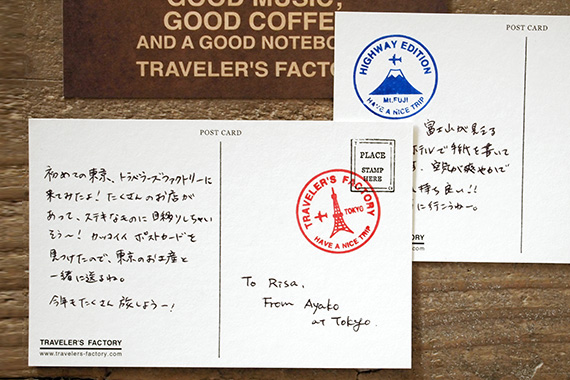 GOOD MUSIC,
GOOD COFFE
AND A GOOD NOTEBO
TRAVELER'S FACTO
POST CARD
HIGHWAY EDITION
Mt.FUJI
HAVE A NICE TRIP
富士山が見える
ホテルで手紙を書いて
す。空気が爽やかで
気持ち良い!!
に行こうねー。
POST CARD
PLACE
STAMP
HERE
TRAVELER'S FACTORY
TOKYO
HAVE A NICE TRIP
初めての東京、トラベラーズファクトリーに
来てみたよ！たくさんのお店が
あって、ステキなものに目移りしちゃい
そうー！カッコイイ ポストカードを
見つけたので、東京のお土産と
一緒に送るね。
今年もたくさん旅しようー！
To Risa,
From Ayako
at Tokyo.
TRAVELER'S FACTORY
www.travelers-factory.com